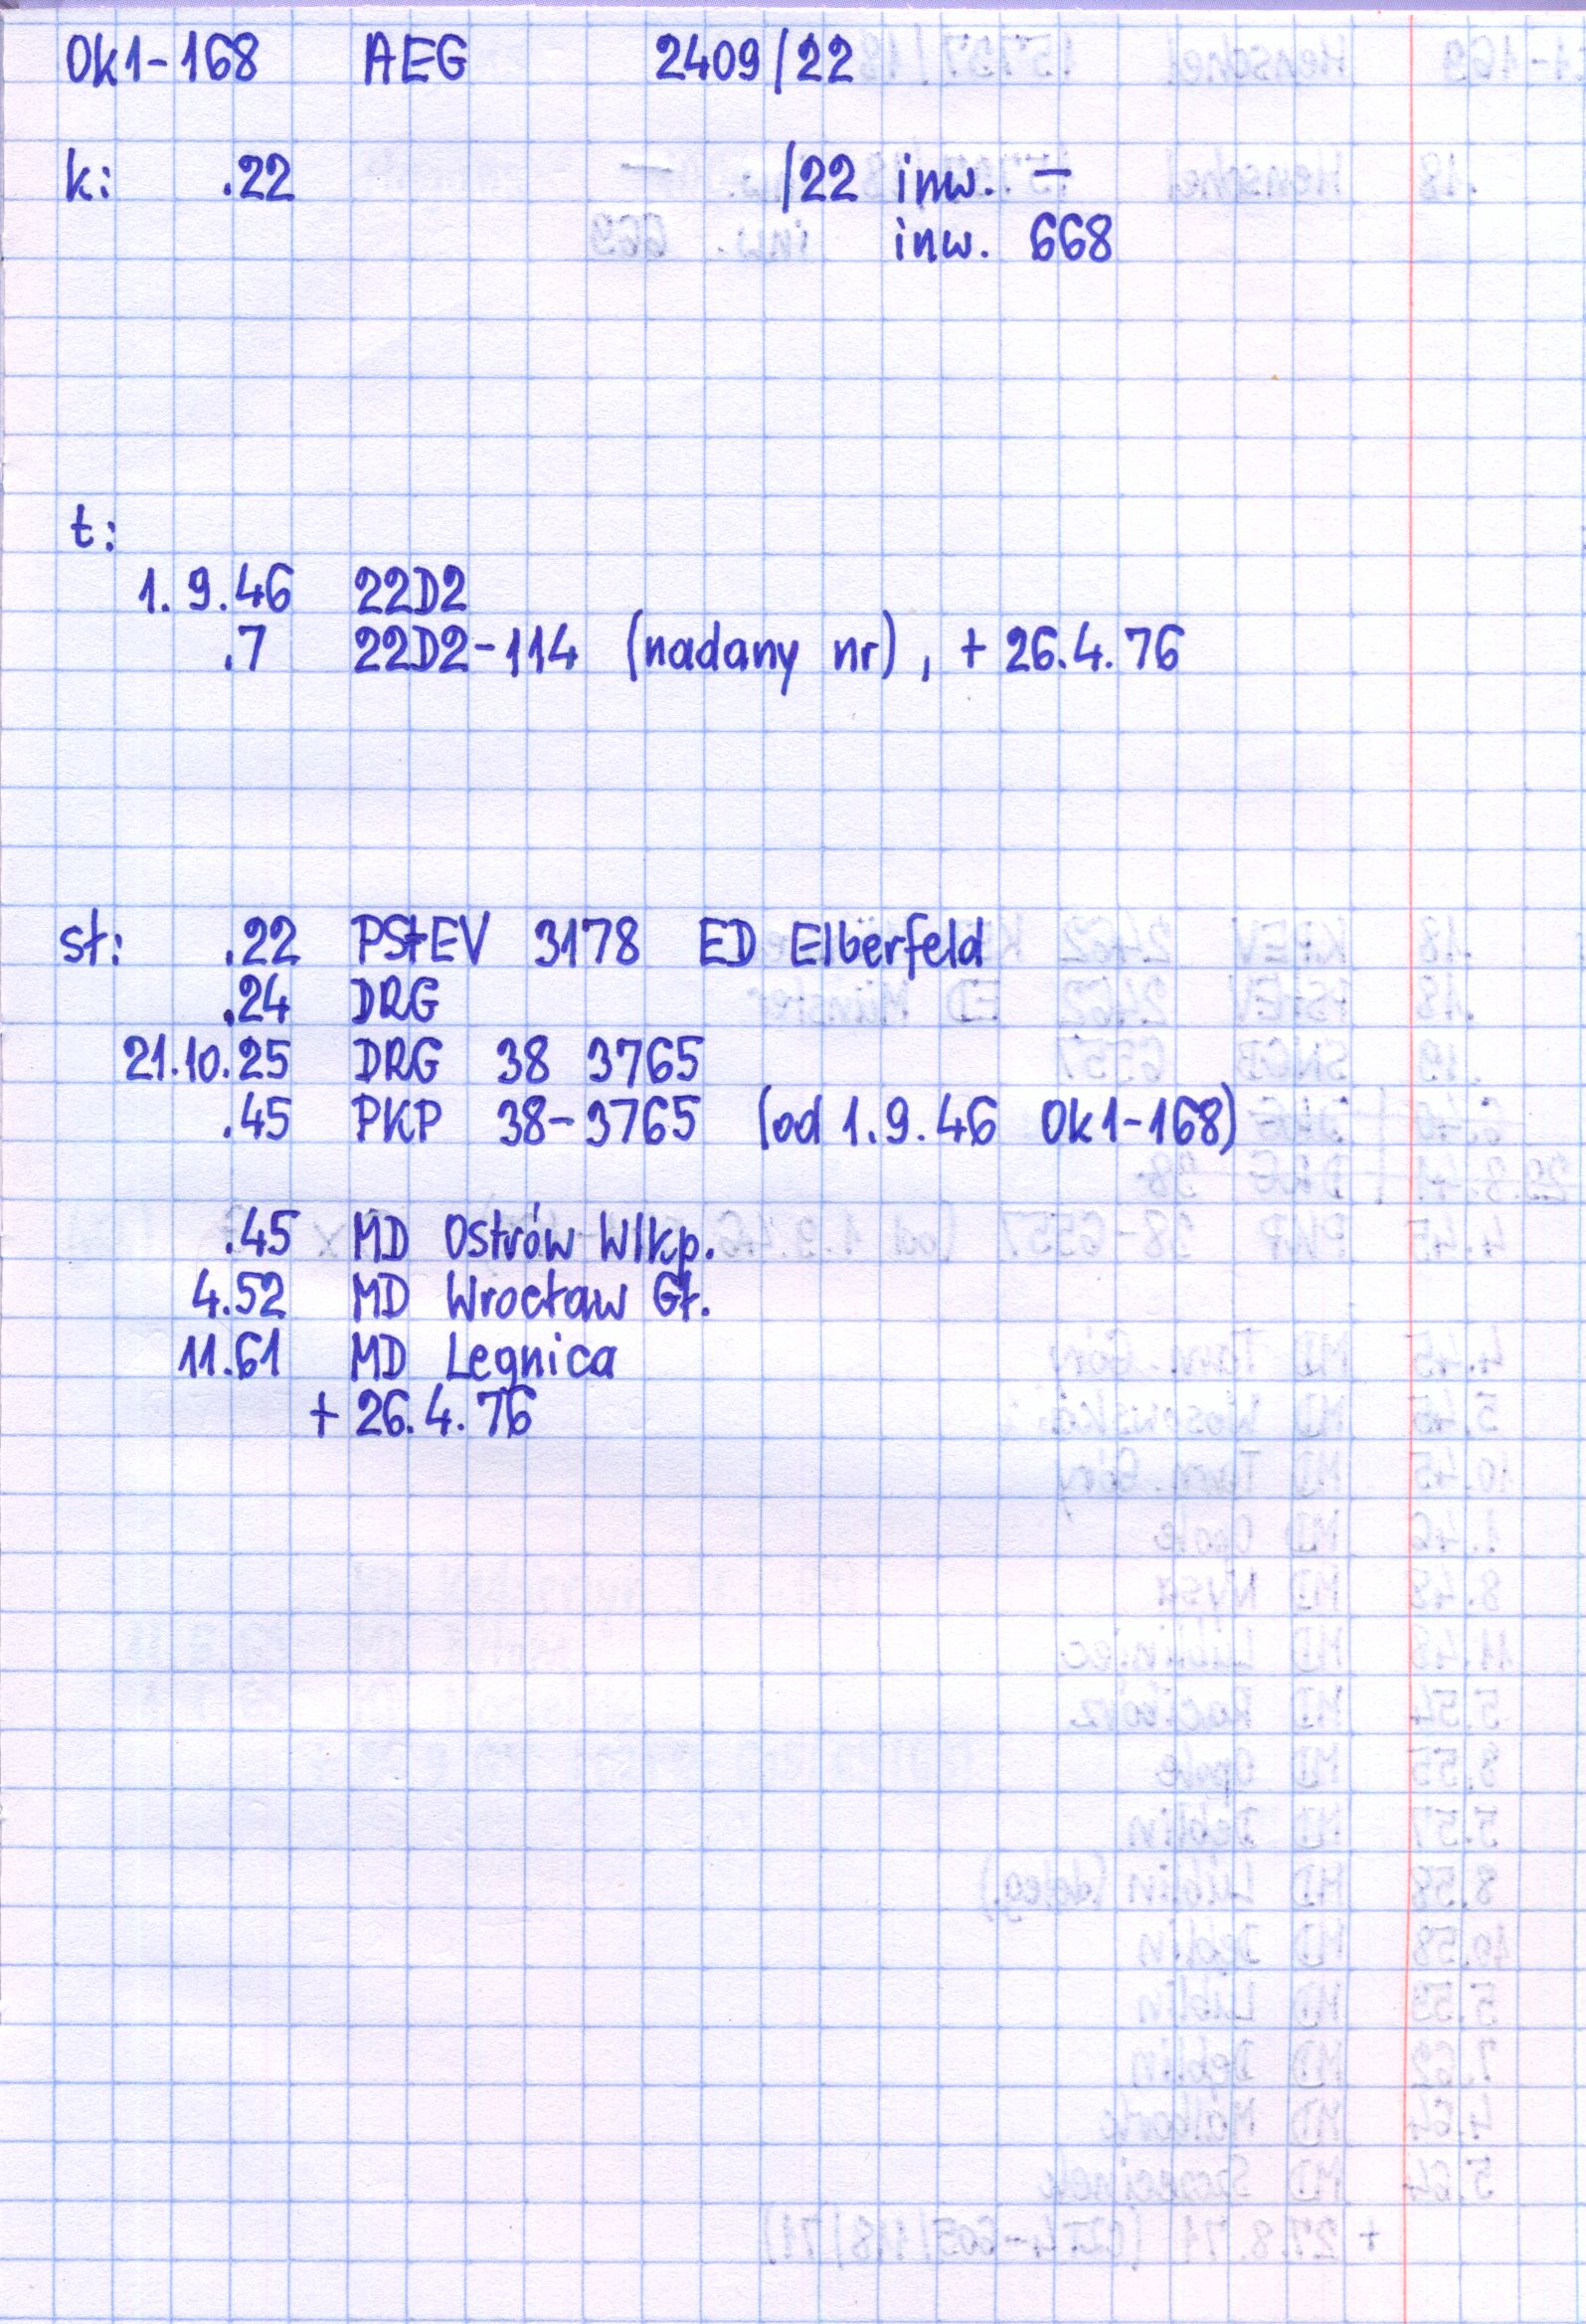 Ok1-168 AEG 2409/22
k: .22 /22 inw. —
inw. 668
t:
1.9.46 22D2
.7 22D2-114 (nadany nr), + 26.4.76
st: .22 PStEV 3178 ED Elberfeld
.24 DRG
21.10.25 DRG 38 3765
.45 PKP 38-3765 (od 1.9.46 Ok1-168)
.45 MD Ostrów Wlkp.
4.52 MD Wrocław Gł.
11.61 MD Legnica
+ 26.4.76